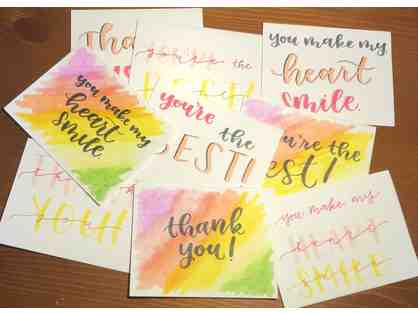 tha
you're the
BEST!
you make my
heart
smile.
you make my
heart
smile
you're
the
BEST!
you're the
best!
YOU
thank
you!
you make my
heart
SMILE